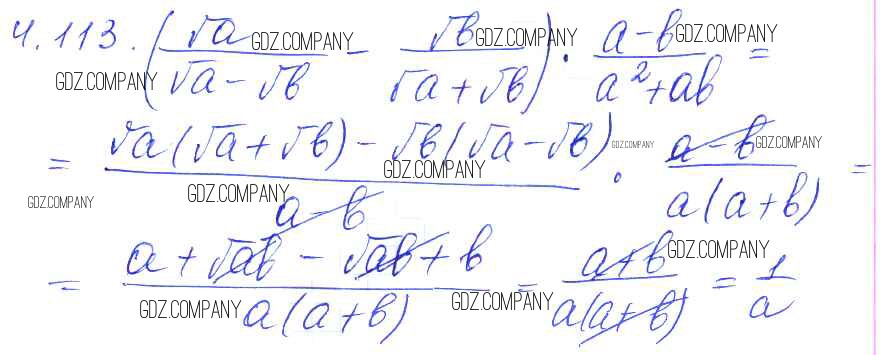 4.113. (√a / (√a − √b) − √b / (√a + √b)) · (a − b) / (a² + ab) =
= (√a(√a + √b) − √b(√a − √b)) / (a − b) · (a − b) / (a(a + b)) =
= (a + √ab − √ab + b) / (a(a + b)) = (a + b) / (a(a + b)) = 1 / a
GDZ.COMPANY
GDZ.COMPANY
GDZ.COMPANY
GDZ.COMPANY
GDZ.COMPANY
GDZ.COMPANY
GDZ.COMPANY
GDZ.COMPANY
GDZ.COMPANY
GDZ.COMPANY
GDZ.COMPANY
GDZ.COMPANY